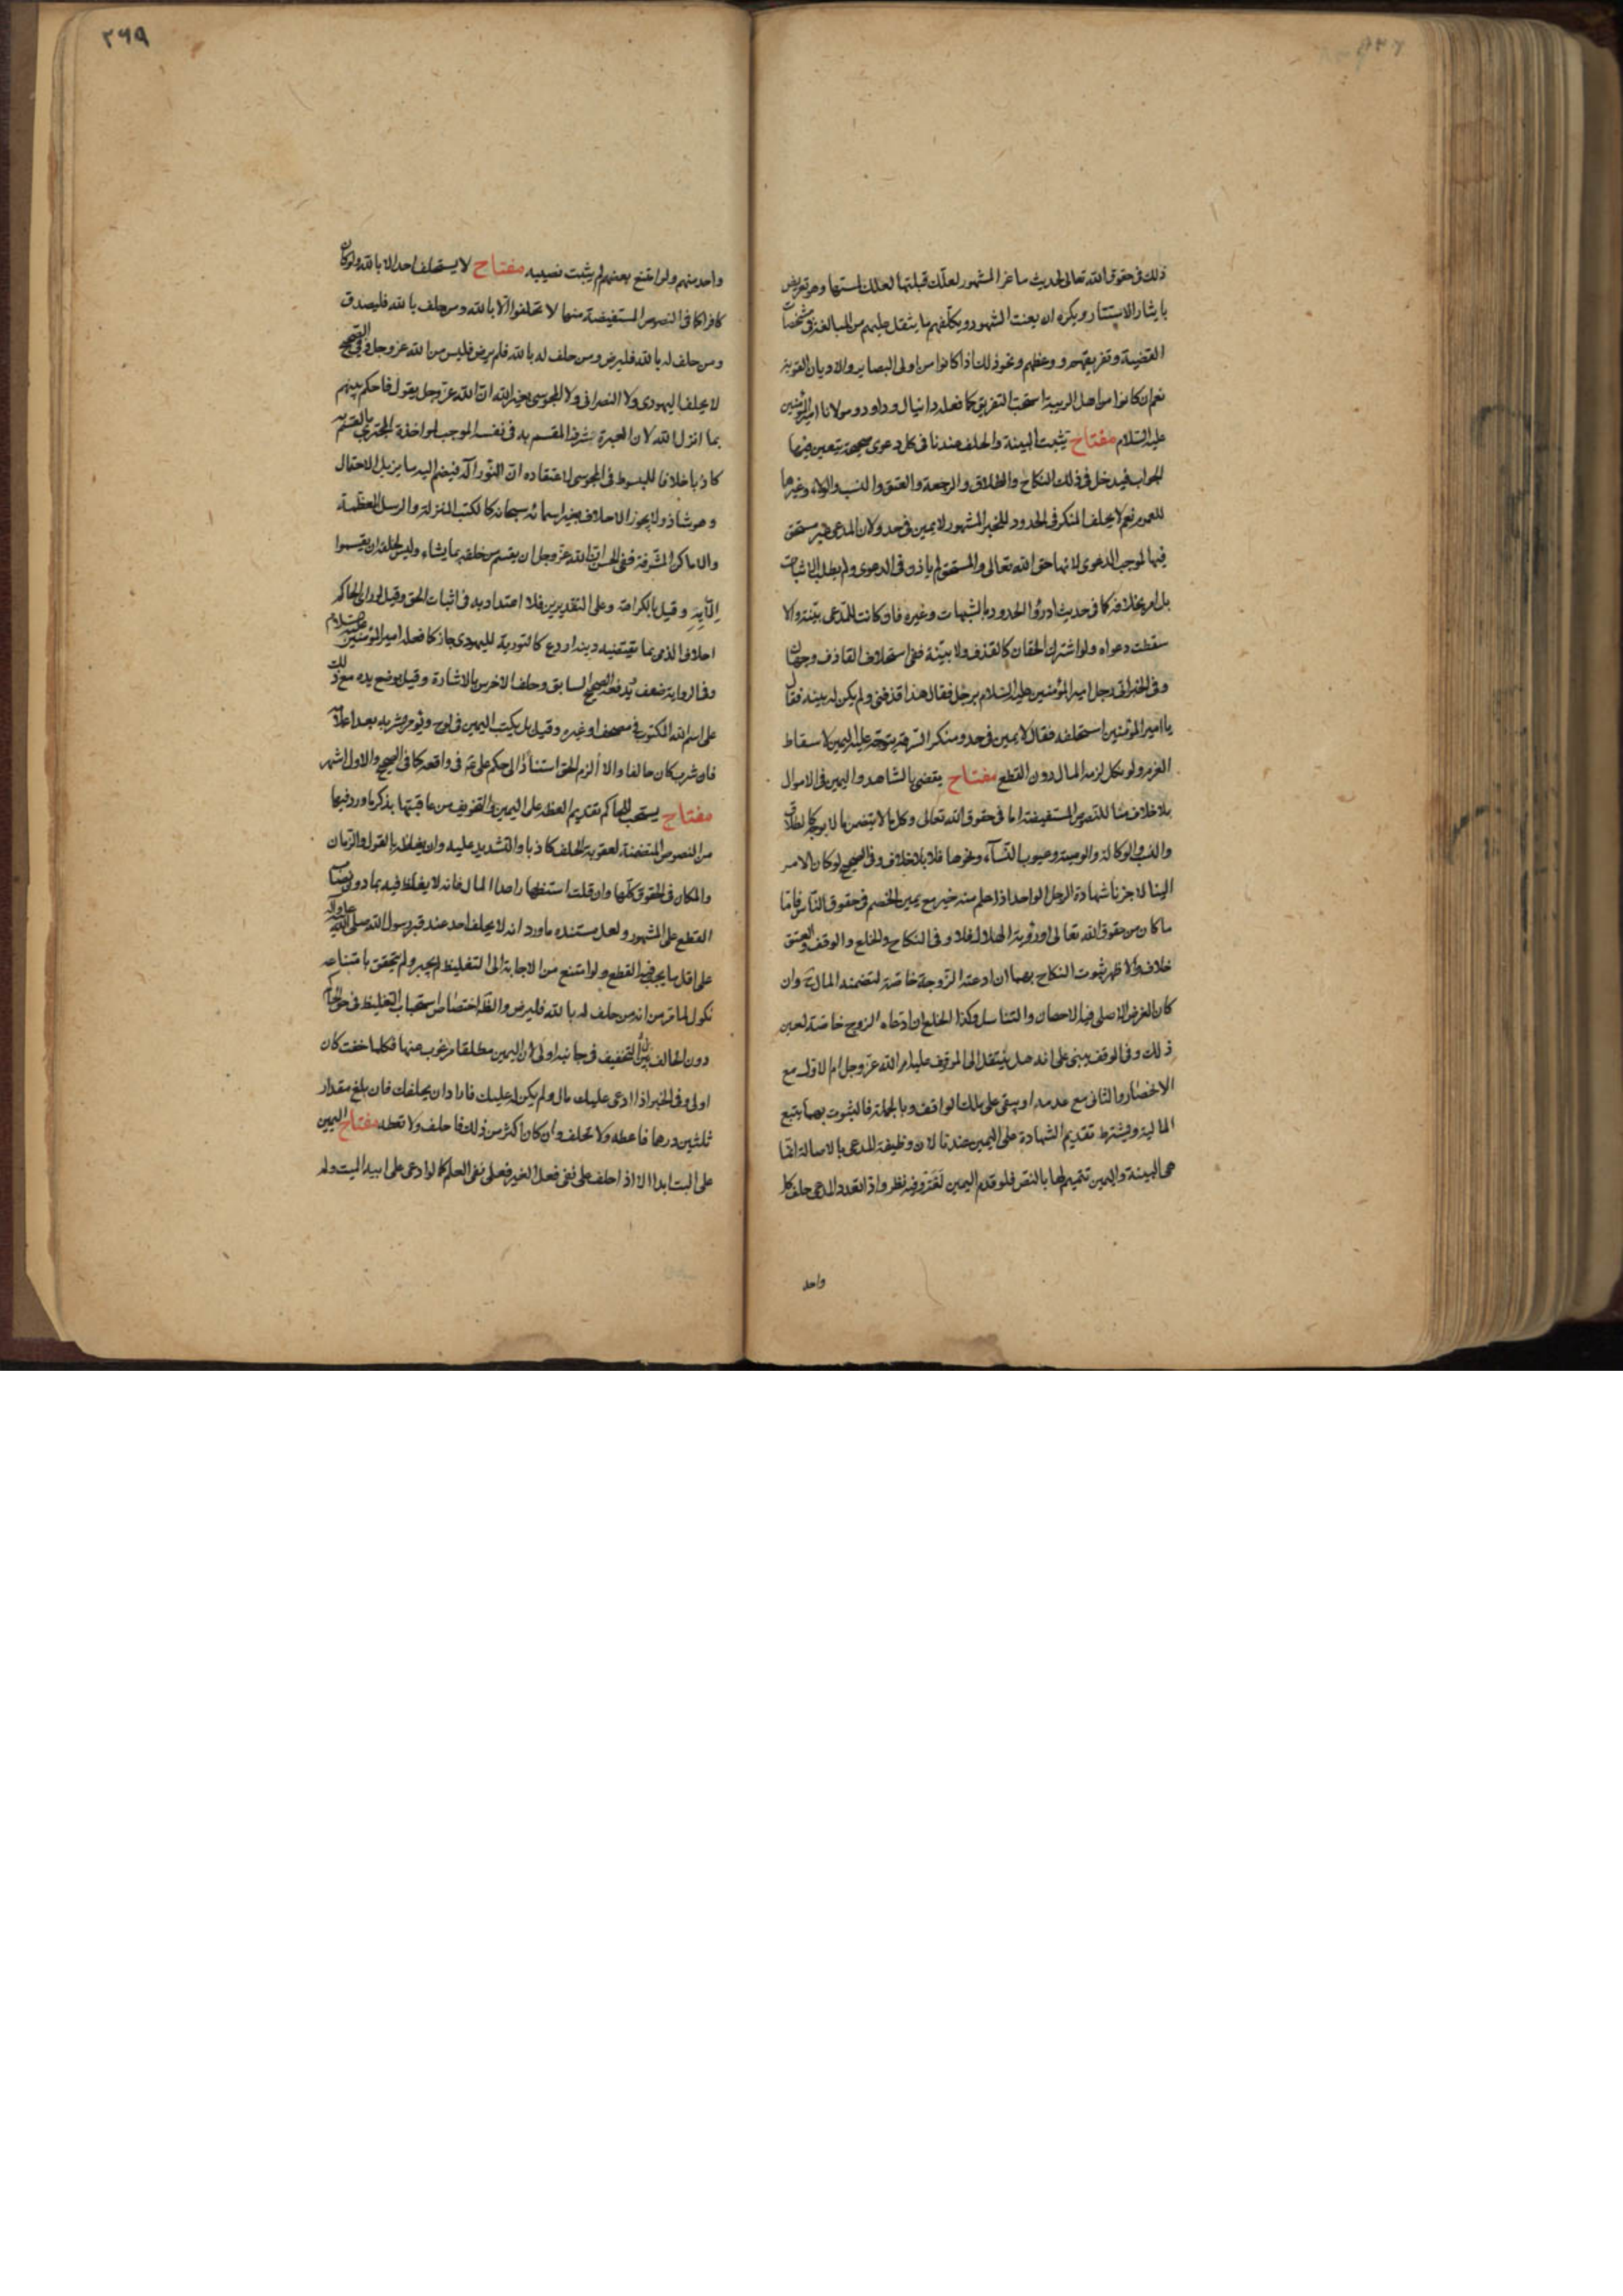 ذلك فى حقوق الله تعالى لحديث ماعز المشهور لعلك قبلتها لعلك لمستها وهو تعريض
بايثار الاستتار ويكره ان يعنت الشهود ويكلفهم ما يثقل عليهم من المبالغة فى مشخصات
القضية وتفريقهم ووعظهم ونحو ذلك اذا كانوا من اولى البصاير والاديان القوية
نعم ان كانوا من اهل الريبة استحب التفريق كما فعله دانيال وداود ومولانا امير المؤمنين
عليه السلام مفتاح تثبت البينة والحلف عندنا فى كل دعوى صحيحة يتعين فيها
الجواب فيدخل فى ذلك النكاح والطلاق والرجعة والعتق والنسب والولاء وغيرها
للعموم نعم لا يحلف المنكر فى الحدود للخبر المشهور لا يمين فى حد ولان المدعى غير مستحق
فيها لموجب الدعوى لانها حق الله تعالى والمستحق لم ياذن فى الدعوى ولم يطلب الاثبات
بل امر بخلافه كما فى حديث ادرؤا الحدود بالشبهات وغيره فان كانت للمدعى بينة والا
سقطت دعواه ولو اشترك الحقان كالقذف ولا بينة ففى استحلاف القاذف وجهان
وفى الخبر اتى رجل امير المؤمنين عليه السلام برجل فقال هذا قذفنى ولم يكن له بينة فقال
يا امير المؤمنين استحلفه فقال لا يمين فى حد ومنكر السرقة يتوجه عليه اليمين لاسقاط
الغرم ولو نكل لزمه المال دون القطع مفتاح يقضى بالشاهد واليمين فى الاموال
بلا خلاف منا للنصوص المستفيضة اما فى حقوق الله تعالى وكل ما لا يتضمن مالا يوجه كالطلاق
والنسب والوكالة والوصية وعيوب النسآء ونحوها فلا بلا خلاف وفى الصحيح لو كان الامر
الينا لاجزنا شهادة الرجل الواحد اذا علم منه خير مع يمين الخصم فى حقوق الناس فاما
ما كان من حقوق الله تعالى او رؤية الهلال فلا وفى النكاح والخلع والوقف والعتق
خلاف والاظهر ثبوت النكاح بهما ان ادعته الزوجة خاصة لتضمنه المال وان
كان الغرض الاصلى فيه الاحصان والتناسل وكذا الخلع ان ادعاه الزوج خاصة لعين
ذلك وفى الوقف يبنى على انه هل ينتقل الى الموقوف عليه ام الله عز وجل ام الاول مع
الانحصار والثانى مع عدمه او يبقى على ملك الواقف وبالجملة فالثبوت بهما يتبع
المالية ويشترط تقديم الشهادة على اليمين عندنا لان وظيفة المدعى بالاصالة انما
هى البينة واليمين تتميم لها بالنص فلو قدم اليمين لغت وفيه نظر واذا تعدد المدعى حلف كل
واحد
٢٦٩
واحد منهم ولو امتنع بعضهم لم يثبت نصيبه مفتاح لا يستحلف احد الا بالله ولو كان
كافرا كما فى النصوص المستفيضة منها لا تحلفوا الا بالله ومن حلف بالله فليصدق
ومن حلف له بالله فليرض ومن حلف له بالله فلم يرض فليس من الله عز وجل وفى الصحيح
لا يحلف اليهودى ولا النصرانى ولا المجوسى بغير الله ان الله عز وجل يقول فاحكم بينهم
بما انزل الله لان العبرة بشرف المقسم به فى نفسه الموجب لمواخذة المجترى بالقسم به
كاذبا خلافا للمبسوط فى المجوسى لاعتقاده ان النور اله فيضم اليه ما يزيل الاحتمال
وهو شاذ ولا يجوز الاحلاف بغير اسمائه سبحانه كالكتب المنزلة والرسل المعظمة
والاماكن المشرفة ففى الحسن ان الله عز وجل ان يقسم من خلقه بما يشاء وليس لخلقه ان يقسموا
الا به وقيل بالكراهة وعلى التقديرين فلا اعتداد به فى اثبات الحق وقيل لو راى الحاكم
احلاف الذمى بما يقتضيه دينه اردع كالتورية لليهودى جاز كما فعله امير المؤمنين عليه السلام
وفى الرواية ضعف يدفعه الصحيح السابق وحلف الاخرس بالاشارة وقيل يوضع يده مع ذلك
على اسم الله المكتوب فى مصحف او غيره وقيل بل يكتب اليمين فى لوح ويؤمر بشربه بعد اعلامه
فان شرب كان حالفا والا الزم الحق استنادا الى حكم على ع فى واقعة كما فى الصحيح والاول اشهر
مفتاح يستحب للحاكم تقديم العظة على اليمين والتخويف من عاقبتها بذكر ما ورد فيها
من النصوص المتضمنة لعقوبة الحلف كاذبا والتشديد عليه وان يغلظ بالقول والزمان
والمكان فى الحقوق كلها وان قلت استظهارا عدا المال فانه لا يغلظ فيه بما دون نصاب
القطع على المشهور ولعل مستنده ما ورد انه لا يحلف احد عند قبر رسول الله صلى الله عليه واله
على اقل مما يجب فيه القطع ولو امتنع من الاجابة الى التغليظ لم يجبر ولم يتحقق بامتناعه
نكول لما مر من انه من حلف له بالله فليرض والظ اختصاص استحباب التغليظ فى حق الحاكم
دون الحالف بل التخفيف فى جانبه اولى لان اليمين مطلقا مرغوب عنها فكلما خفت كان
اولى وفى الخبر اذا ادعى عليك مال ولم يكن له عليك فاراد ان يحلفك فان بلغ مقدار
ثلثين درهما فاعطه ولا تحلف وان كان اكثر من ذلك فاحلف ولا تعطه مفتاح اليمين
على البت ابدا الا اذا حلف على نفى فعل الغير فعلى نفى العلم كما لو ادعى على ابيه الميت ولم